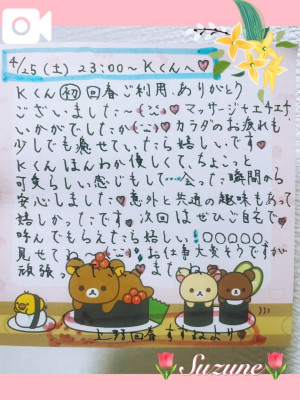 4/25(土) 23:00~Kくんへ♡
Kくん㊗初回春ご利用、ありがとう
ございました~(¨̮) マッサージ&エチエチ
いかがでしたか(¨̮) カラダのお疲れも
少しでも癒せていたら嬉しいです
Kくんほんわか優しくて、ちょこっと
可愛らしい感じもして…会った瞬間から
安心しました♡意外と共通の趣味もあって
嬉しかったです。次回はぜひご自宅で
呼んでもらえたら嬉しい!○○○○○、
見せてね お仕事大変そうですが
頑張っ ま
上野回春 すずねより♡
Suzune